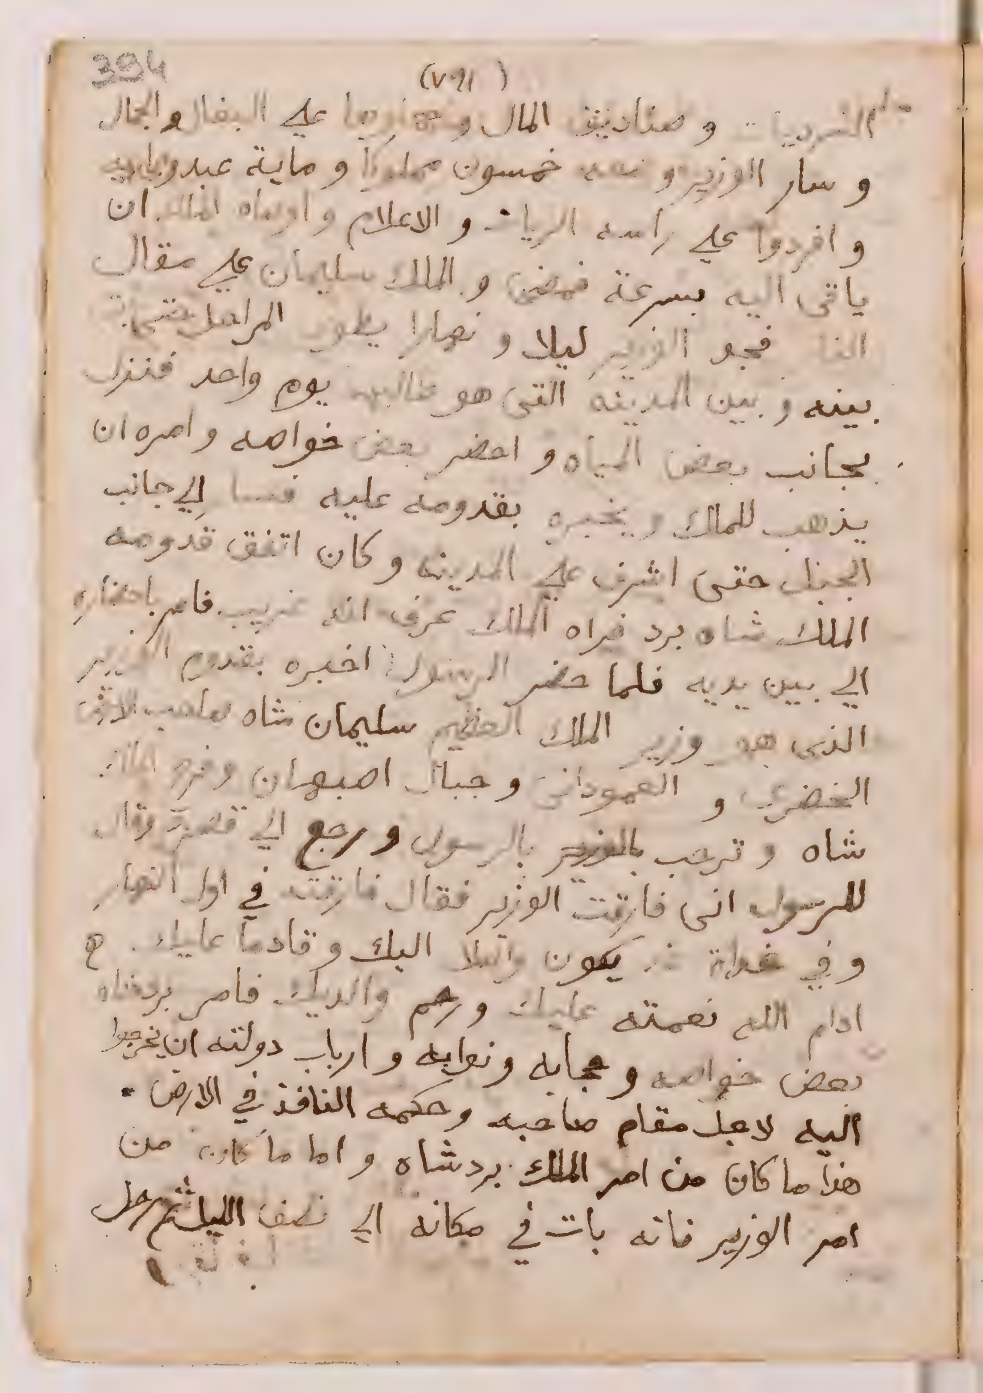 394
السرديات و صناديق المال و على البغال و الجمال
و سار الوزير و معه خمسون مملوكا و ماية عبد
و افردوا على راسه الريات و الاعلام و اوصاه الملك ان
ياتى اليه بسرعة فمضى و الملك سليمان على مقال
النار فجد الوزير ليلا و نهارا يطوى المراحل حتى
بينه و بين المدينه التى هو طالبها يوم واحد فنزل
بجانب بعض المياه و احضر بعض خواصه و امره ان
يذهب للملك و يخبره بقدومه عليه فسا الي جانب
الجبل حتى اشرف على المدينه و كان اتفق قدومه
الملك شاه برد فراه الملك عرف انه غريب فامر باحضاره
الي بين يديه فلما حضر الرسول اخبره بقدوم الوزير
الذى هو وزير الملك العظيم سليمان شاه صاحب الارض
الخضرى و العمودانى و جبال اصبهان و فرح الملك
شاه و ترحب بالوزير بالرسول و رجع الي قصره و قال
للرسول انى فارقت الوزير فقال فارقته في اول النهار
و في غداة غد يكون واصلا اليك و قادما عليك
ادام الله نعمته عليك و رحم والديك فامر بردشاه
بعض خواصه و حجابه و نوابه و ارباب دولته ان يخرجوا
اليه لاجل مقام صاحبه و حكمه النافذ في الارض
هذا ما كان من امر الملك بردشاه و اما ما كان من
امر الوزير فانه بات في مكانه الي نصف الليل ثم رحل